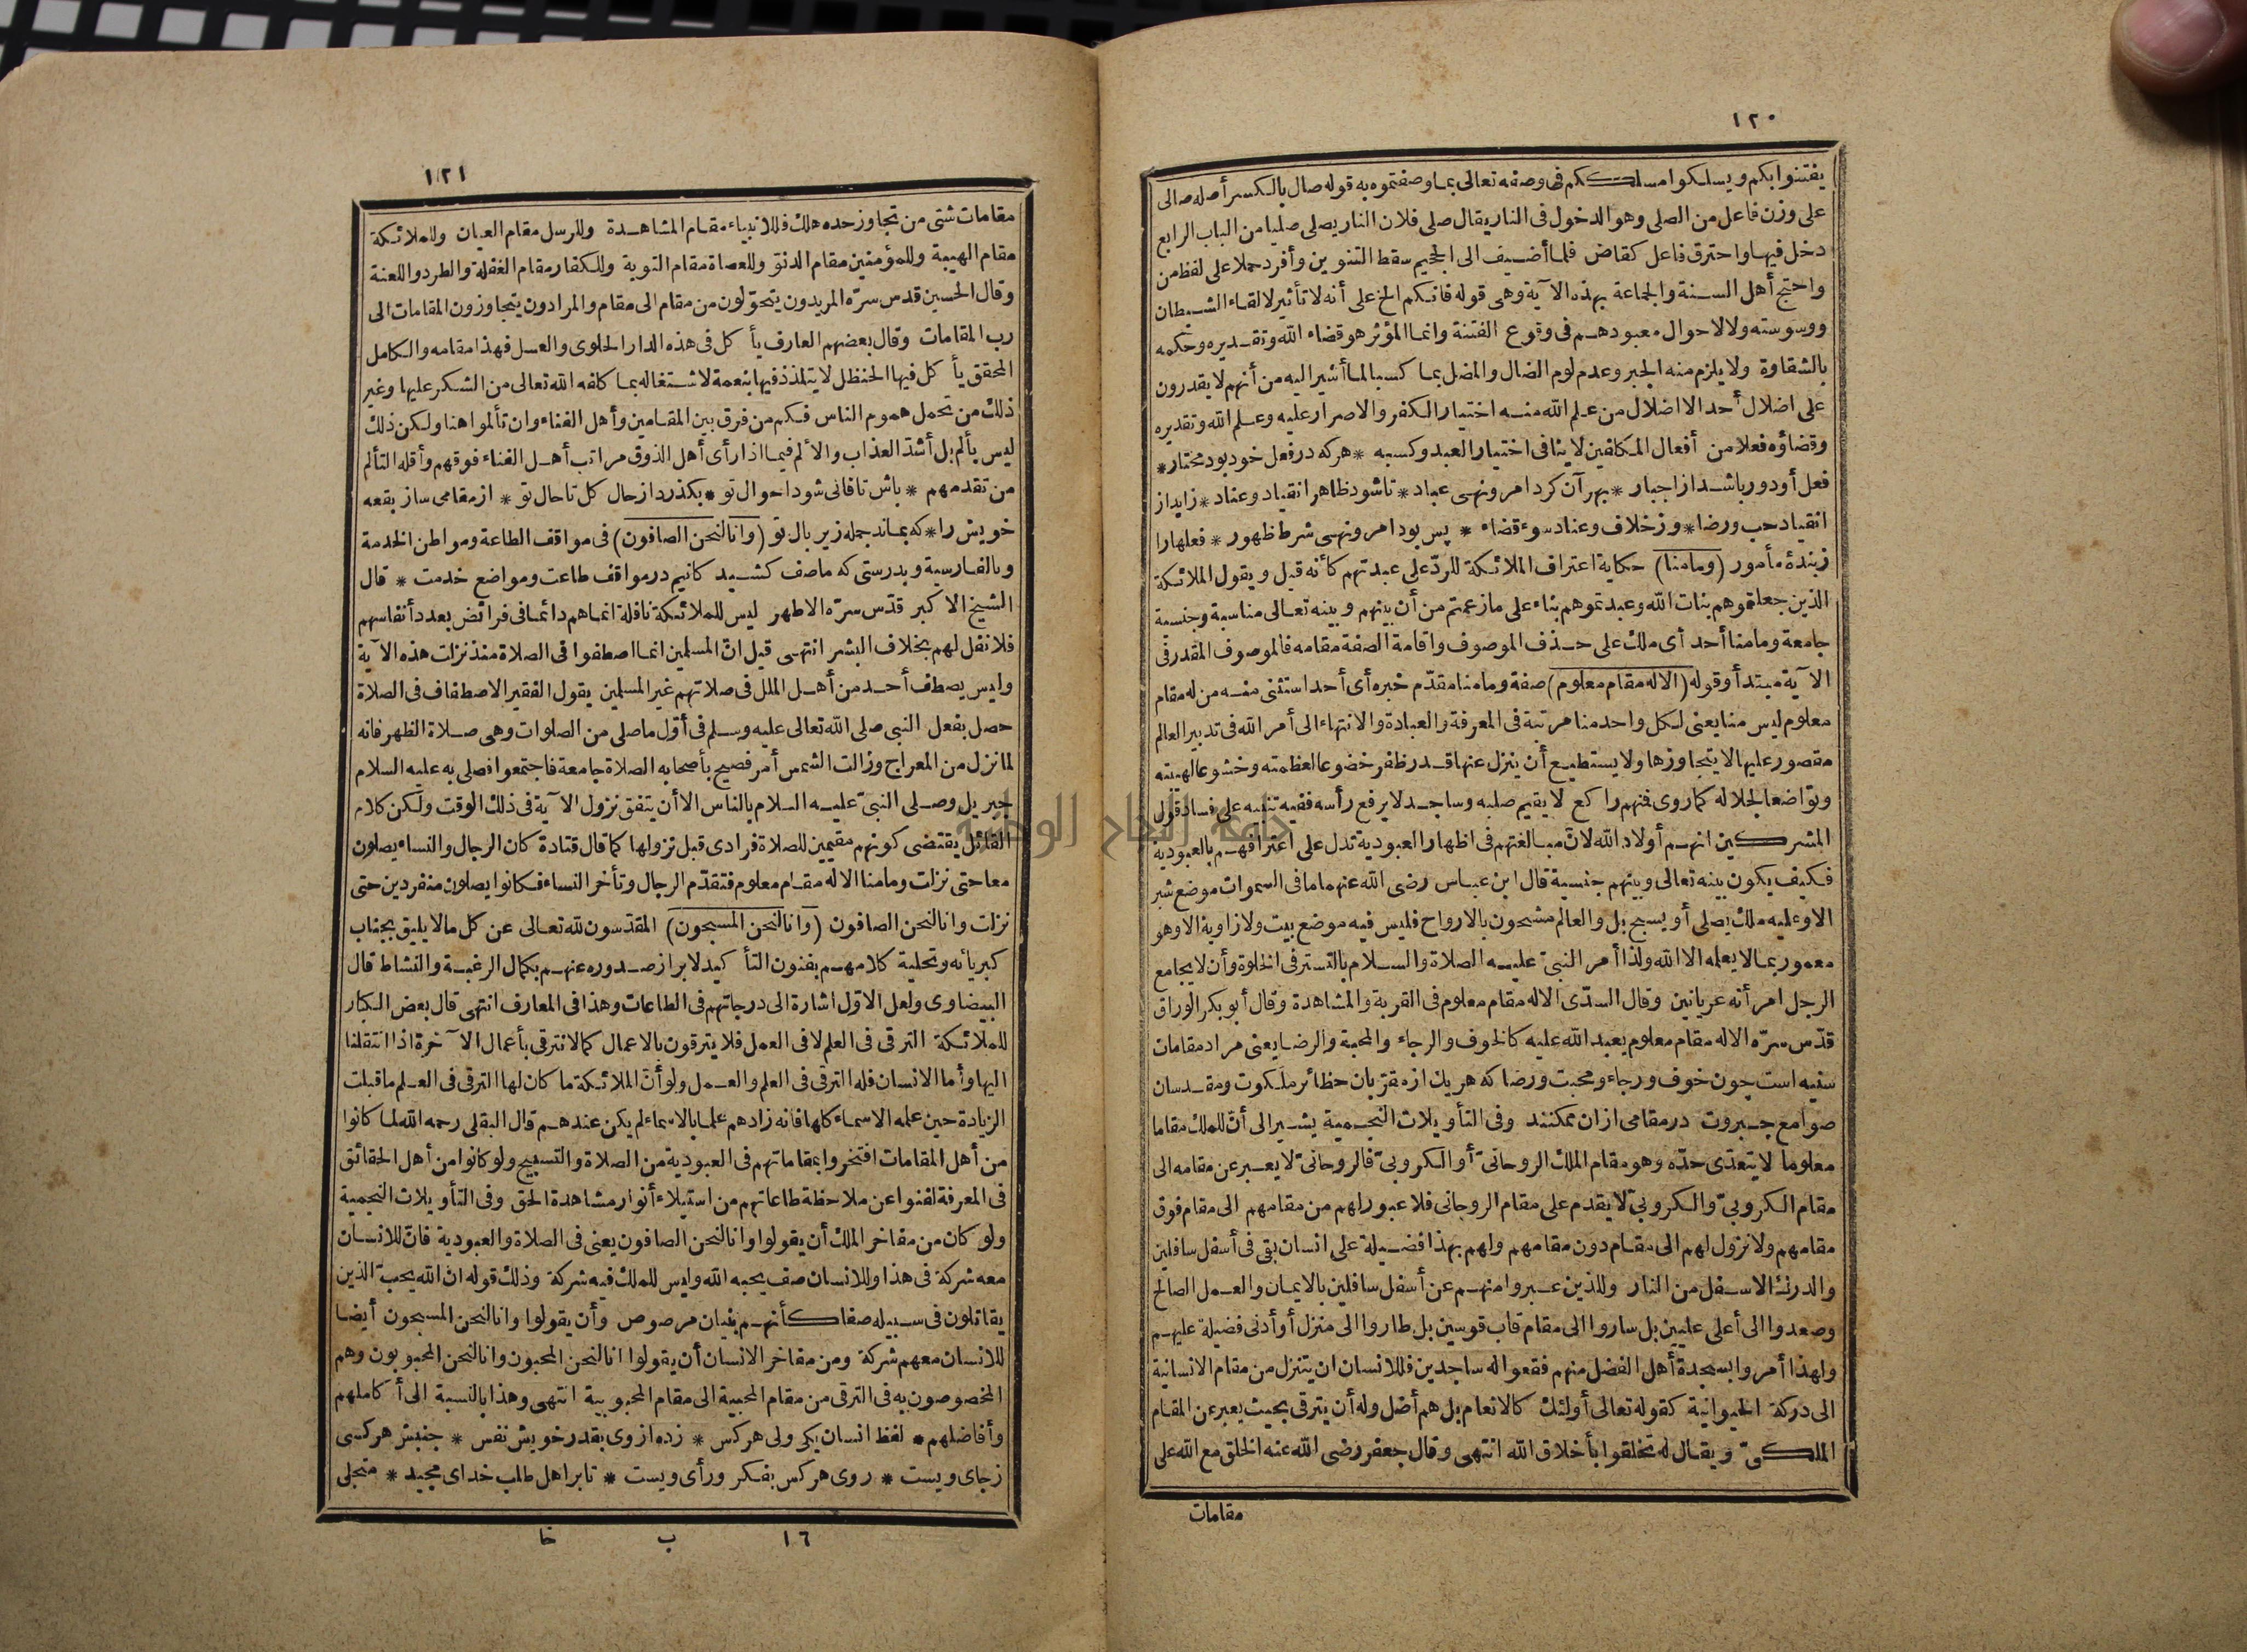 ١٢٠
يفتنوا بكم ويسلكوا مسلككم فى وصفه تعالى بما وصفتموه به قوله صال بالكسر أصله صالى
على وزن فاعل من الصلى وهو الدخول فى النار يقال صلى فلان النار يصلى صليا من الباب الرابع
دخل فيها واحترق فاعل كقاض فلما أضيف الى الجحيم سقط التنوين وأفرد حملا على لفظ من
واحتج أهل السنة والجماعة بهذه الآية وهى قوله فانكم الخ على أنه لا تأثير لالقاء الشيطان
ووسوسته ولا لاحوال معبودهم فى وقوع الفتنة وانما المؤثر هو قضاء الله وتقديره وحكمه
بالشقاوة ولا يلزم منه الجبر وعدم لوم الضال والمضل بما كسبا لما أشير اليه من أنهم لا يقدرون
على اضلال أحد الا اضلال من علم الله منه اختيار الكفر والاصرار عليه وعلم الله وتقديره
وقضاؤه فعلا من أفعال المكلفين لا ينافى اختيار العبد وكسبه * هركه در فعل خود بود مختار *
فعل أو دور باشد از اجبار * بهر آن كرد امر ونهى عباد * تا شود ظاهر انقياد وعناد * زايد از
انقياد حب ورضا * وز خلاف وعناد سوء قضاء * پس بود امر ونهى شرط ظهور * فعلها را
زبندهٔ مأمور (وما منا) حكاية اعتراف الملائكة للردّ على عبدتهم كأنه قيل ويقول الملائكة
الذين جعلتموهم بنات الله وعبدتموهم بناء على ما زعمتم من أن بينهم وبينه تعالى مناسبة وجنسية
جامعة وما منا أحد أى ملك على حذف الموصوف واقامة الصفة مقامه فالموصوف المقدر فى
الآية مبتدأ وقوله (الا له مقام معلوم) صفة وما منا مقدّم خبره أى أحد استثنى منه من له مقام
معلوم ليس منا يعنى لكل واحد منا مرتبة فى المعرفة والعبادة والانتهاء الى أمر الله فى تدبير العالم
مقصور عليها لا يتجاوزها ولا يستطيع أن ينزل عنها قدر ظفر خضوعا لعظمته وخشوعا لهيبته
وتواضعا لجلاله كما روى فمنهم راكع لا يقيم صلبه وساجد لا يرفع رأسه ففيه تنبيه على فساد قول
المشركين انهم أولاد الله لانّ مبالغتهم فى اظهار العبودية تدل على اعترافهم بالعبودية
فكيف يكون بينه تعالى وبينهم جنسية قال ابن عباس رضى الله عنهما ما فى السموات موضع شبر
الا وعليه ملك يصلى أو يسبح بل والعالم مشحون بالارواح فليس فيه موضع بيت ولا زاوية الا وهو
معمور بما لا يعلمه الا الله ولذا أمر النبىّ عليه الصلاة والسلام بالتستر فى الخلوة وأن لا يجامع
الرجل امرأته عريانين وقال السدّى الا له مقام معلوم فى القربة والمشاهدة وقال أبو بكر الوراق
قدّس سرّه الا له مقام معلوم يعبد الله عليه كالخوف والرجاء والمحبة والرضا يعنى مراد مقامات
سنيه است چون خوف ورجاء ومحبت ورضا كه هريك از مقرّبان حظائر ملكوت ومقدسان
صوامع جبروت در مقامى ازان ممكنند وفى التأويلات النجمية يشير الى أنّ للملك مقاما
معلوما لا يتعدّى حدّه وهو مقام الملك الروحانىّ أو الكروبىّ فالروحانىّ لا يعبر عن مقامه الى
مقام الكروبىّ والكروبىّ لا يقدم على مقام الروحانى فلا عبور لهم من مقامهم الى مقام فوق
مقامهم ولا نزول لهم الى مقام دون مقامهم ولهم بهذا فضيلة على انسان بقى فى أسفل سافلين
والدرك الاسفل من النار وللذين عبروا منهم عن أسفل سافلين بالايمان والعمل الصالح
وصعدوا الى أعلى عليين بل ساروا الى مقام قاب قوسين بل طاروا الى منزل أو أدنى فضيلة عليهم
ولهذا أمروا بسجدة أهل الفضل منهم فقعوا له ساجدين فللانسان ان يتنزل من مقام الانسانية
الى دركة الحيوانية كقوله تعالى أولئك كالانعام بل هم أضل وله أن يترقى بحيث يعبر عن المقام
الملكىّ ويقال له تخلقوا بأخلاق الله انتهى وقال جعفر رضى الله عنه الخلق مع الله على
مقامات
١٢١
مقامات شتى من تجاوز حده هلك فللانبياء مقام المشاهدة وللرسل مقام العيان وللملائكة
مقام الهيبة وللمؤمنين مقام الدنوّ وللعصاة مقام التوبة وللكفار مقام الغفلة والطرد واللعنة
وقال الحسين قدس سرّه المريدون يتحوّلون من مقام الى مقام والمرادون يتجاوزون المقامات الى
رب المقامات وقال بعضهم العارف يأكل فى هذه الدار الحلوى والعسل فهذا مقامه والكامل
المحقق يأكل فيها الحنظل لا يتلذذ فيها بنعمة لاشتغاله بما كلفه الله تعالى من الشكر عليها وغير
ذلك من تحمل هموم الناس فكم من فرق بين المقامين وأهل الفناء وان تألموا هنا ولكن ذلك
ليس بألم بل أشدّ العذاب والألم فيما اذا رأى أهل الذوق مراتب أهل الفناء فوقهم وأقله التألم
من تقدمهم * باش تا فانى شود احوال تو * بكذرد از حال كل تا حال تو * از مقامى ساز بقعه
خويش را * كه بماند جمله زير بال تو (وانا لنحن الصافون) فى مواقف الطاعة ومواطن الخدمة
وبالفارسية وبدرستى كه ما صف كشيد كانيم در مواقف طاعت ومواضع خدمت * قال
الشيخ الاكبر قدّس سرّه الاطهر ليس للملائكة نافلة انما هم دائما فى فرائض بعدد أنفاسهم
فلا نفل لهم بخلاف البشر انتهى قيل انّ المسلمين انما اصطفوا فى الصلاة منذ نزلت هذه الآية
وليس يصطف أحد من أهل الملل فى صلاتهم غير المسلمين يقول الفقير الاصطفاف فى الصلاة
حصل بفعل النبى صلى الله تعالى عليه وسلم فى أوّل ما صلى من الصلوات وهى صلاة الظهر فانه
لما نزل من المعراج وزالت الشمس أمر فصيح بأصحابه الصلاة جامعة فاجتمعوا فصلى به عليه السلام
جبريل وصلى النبىّ عليه السلام بالناس الا أن يتفق نزول الآية فى ذلك الوقت ولكن كلام
القائل يقتضى كونهم مقيمين للصلاة فرادى قبل نزولها كما قال قتادة كان الرجال والنساء يصلون
معا حتى نزلت وما منا الا له مقام معلوم فتقدّم الرجال وتأخر النساء فكانوا يصلون منفردين حتى
نزلت وانا لنحن الصافون (وانا لنحن المسبحون) المقدّسون لله تعالى عن كل ما لا يليق بجناب
كبريائه وتحلية كلامهم بفنون التأكيد لابراز صدوره عنهم بكمال الرغبة والنشاط قال
البيضاوى ولعل الاوّل اشارة الى درجاتهم فى الطاعات وهذا فى المعارف انتهى قال بعض الكبار
للملائكة الترقى فى العلم لا فى العمل فلا يترقون بالاعمال كما لا نترقى بأعمال الآخرة اذا انتقلنا
اليها وأما الانسان فله الترقى فى العلم والعمل ولو أنّ الملائكة ما كان لها الترقى فى العلم ما قبلت
الزيادة حين علمه الاسماء كلها فانه زادهم علما بالاسماء لم يكن عندهم قال البقلى رحمه الله لما كانوا
من أهل المقامات افتخروا بمقاماتهم فى العبودية من الصلاة والتسبيح ولو كانوا من أهل الحقائق
فى المعرفة لفنوا عن ملاحظة طاعاتهم من استيلاء أنوار مشاهدة الحق وفى التأويلات النجمية
ولو كان من مفاخر الملك أن يقولوا وانا لنحن الصافون يعنى فى الصلاة والعبودية فانّ للانسان
معه شركة فى هذا وللانسان صف يحبه الله وليس للملك فيه شركة وذلك قوله ان الله يحبّ الذين
يقاتلون فى سبيله صفا كأنهم بنيان مرصوص وأن يقولوا وانا لنحن المسبحون أيضا
للانسان معهم شركة ومن مفاخر الانسان أن يقولوا انا لنحن المحبون وانا لنحن المحبوبون وهم
المخصوصون به فى الترقى من مقام المحبية الى مقام المحبوبية انتهى وهذا بالنسبة الى أكاملهم
وأفاضلهم * لفظ انسان يكى ولى هركس * زده از وى بقدر خويش نفس * جنبش هركسى
زجاى ويست * روى هركس بفكر ورأى ويست * تا براهل طلب خداى مجيد * متجلى
١٦ ب خا
جامعة النجاح الوطنية